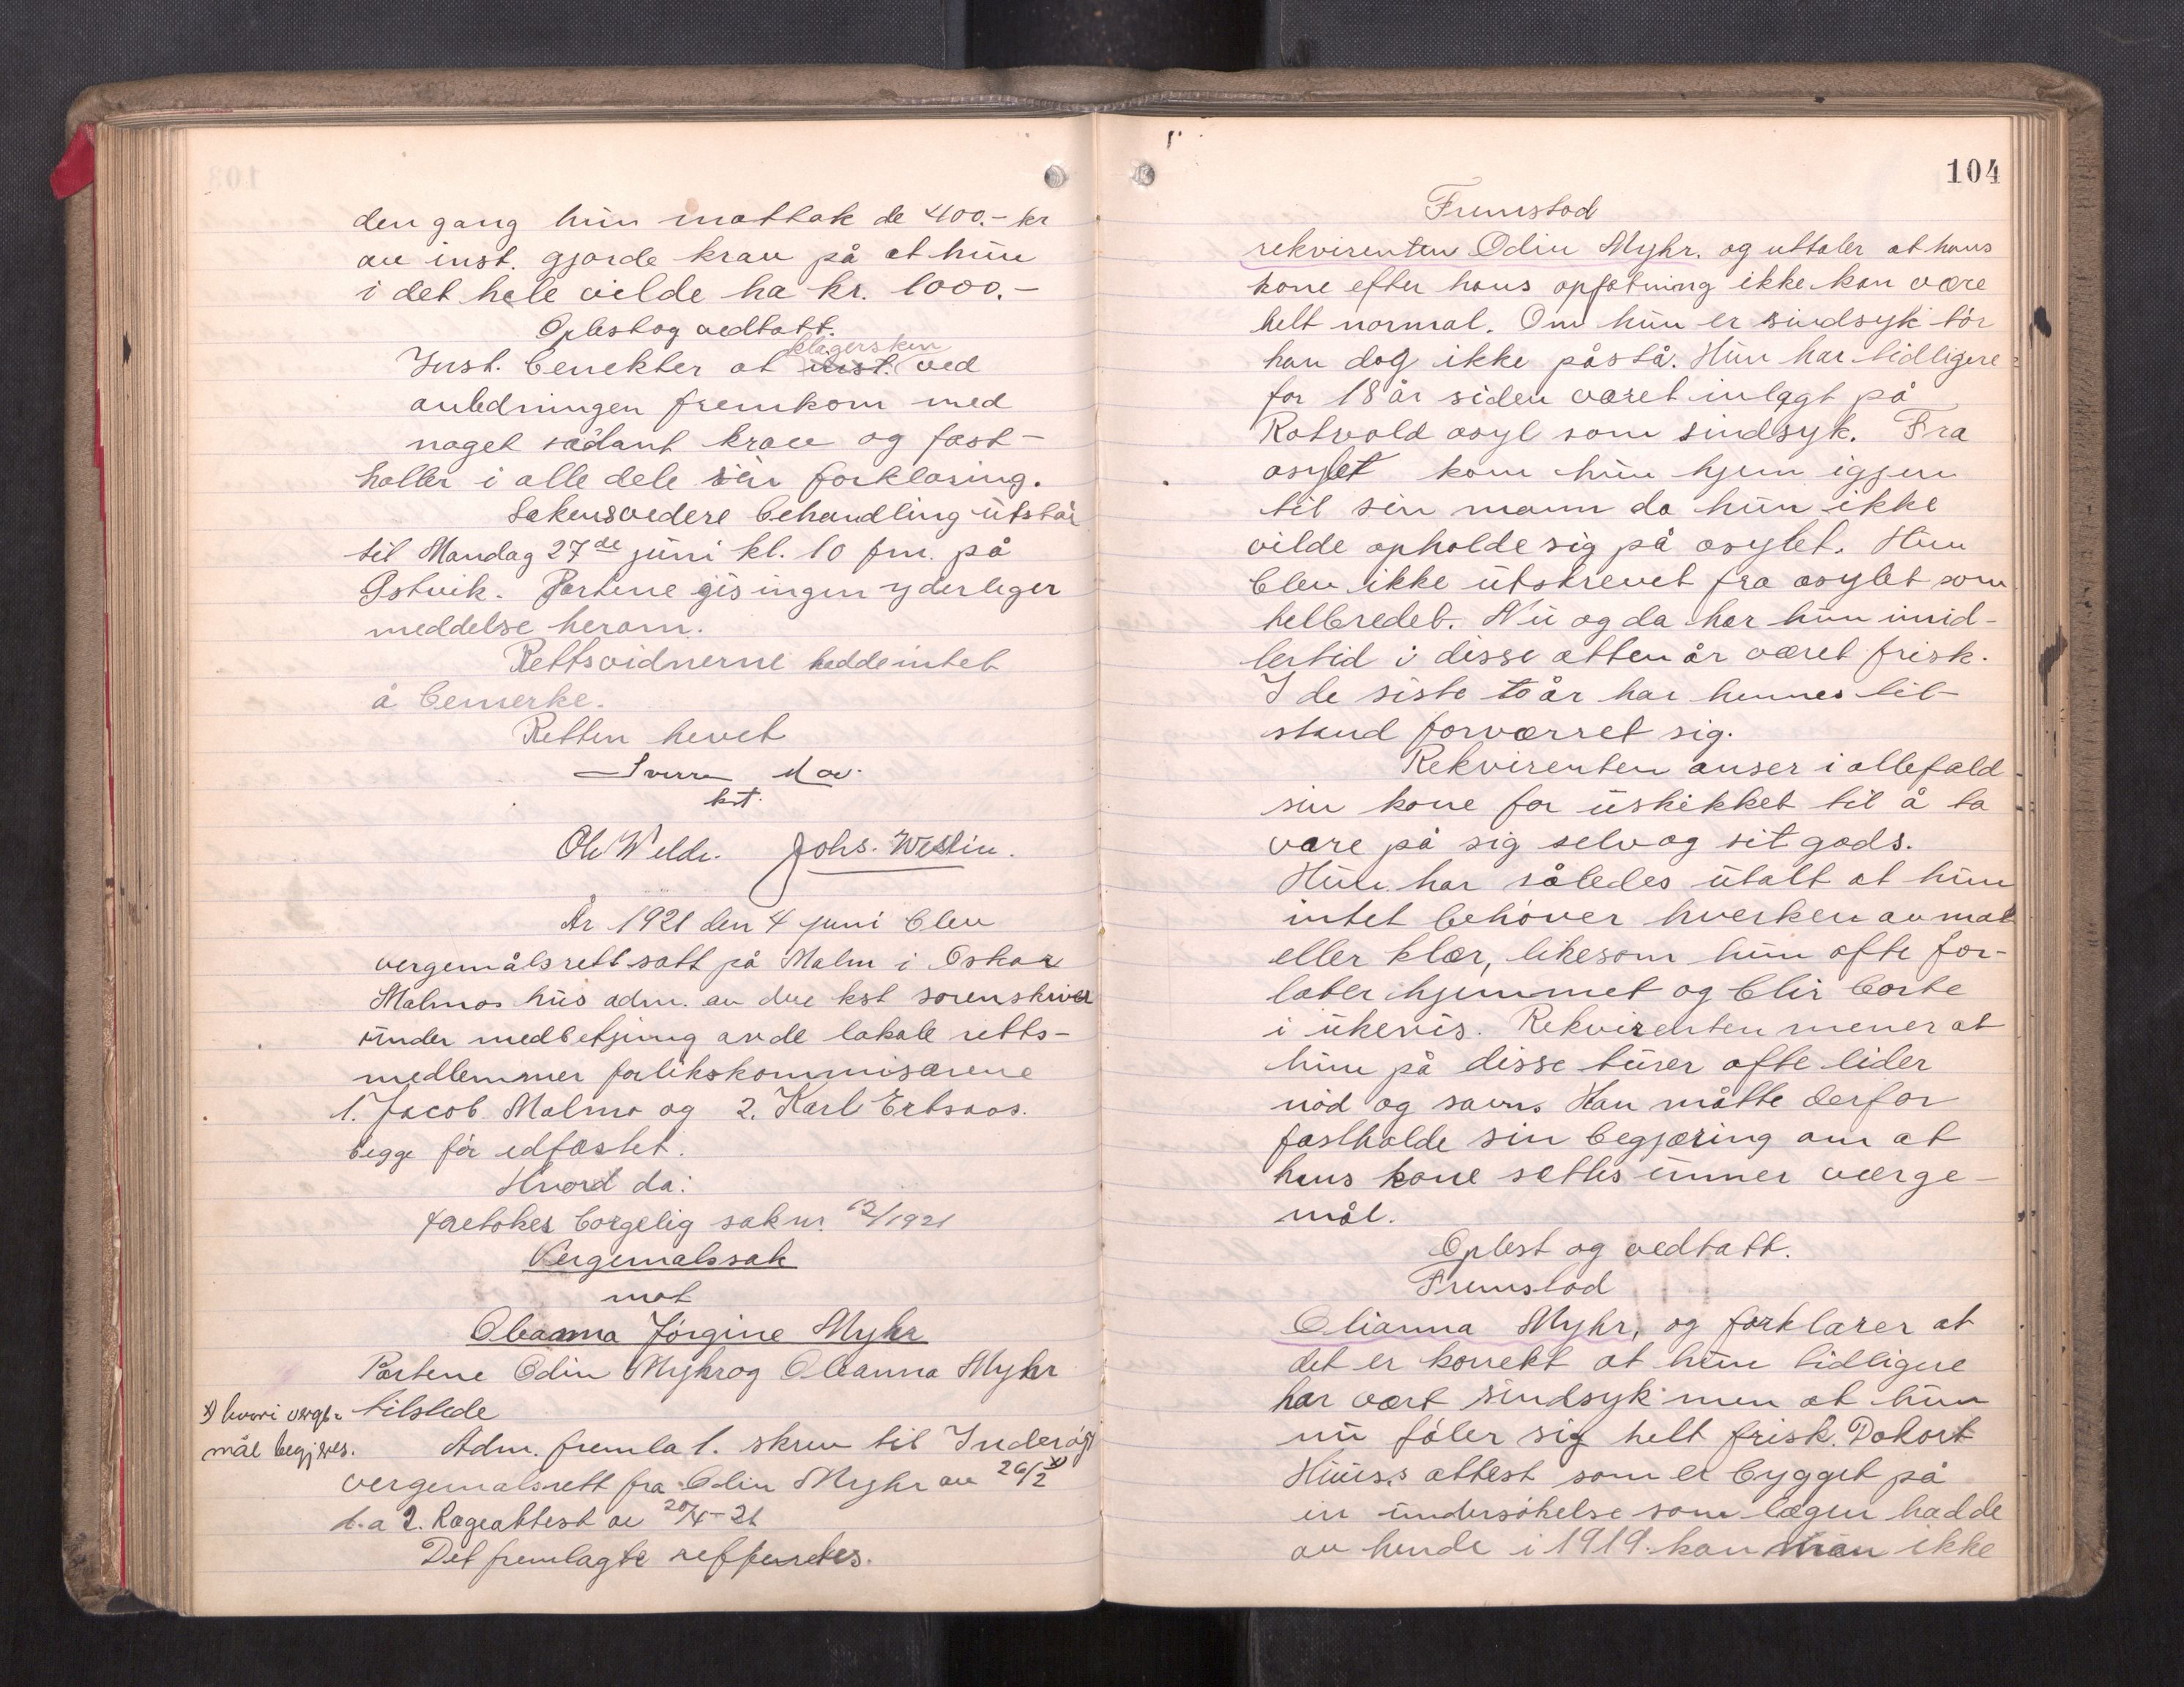 den gang hun mottok de 400.- kr
av inst. gjorde krav på at hun
i det hele vilde ha kr. 1000.-
Oplest og vedtatt.
klagersken
Inst. benekter at inst. ved
anledningen fremkom med
noget sådant krav og fast-
holler i alle dele sin forklaring.
Sakens videre behandling utstår
til Mandag 27de juni kl. 10 fm. på
Østvik. Partene gis ingen yderliger
meddelse herom.
Rettsvidnerne hadde intet
å bemerke.
Retten hevet
Sverre Mov.
kst.
Ole Welde. Johs. Westin.
År 1921 den 4 juni blev
vergemålsrett satt på Malm i Oskar
Malmos hus adm. av den kst sorenskriver
under medbetjening av de lokale retts-
medlemmer forlikskommisærene
1. Jacob Malmo og 2. Karl Ertsaas.
begge før edfæstet.
Hvord da:
foretokes borgelig sak nr. 12/1921
Vergemalssak
mot
Oleanna Jørgine Myhr
Partene Odin Myhr og Oleanna Myhr
x) hvori verge- tilstede
mål begjæres. Adm. fremla 1. skriv til Inderøy
vergemalsrett fra Odin Myhr av 26/2 x)
d.a 2. Lægeattest av 20/4-21
Det fremlagte refereres.
104
Fremstod
rekvirenten Odin Myhr. og uttaler at hans
kone efter hans opfatning ikke kan være
helt normal. Om hun er sindsyk tør
han dog ikke påstå. Hun har tidligere
for 18 år siden været inlagt på
Rotvold asyl som sindsyk. Fra
asylet kom hun hjem iggen
til sin mann da hun ikke
vilde opholde sig på asylet. Hun
blev ikke utskrevet fra asylet som
helbredet. Nu og da har hun imid-
lertid i disse atten år været frisk.
I de siste to år har hennes til-
stand forværret sig.
Rekvirenten anser i allefald
sin kone for uskikket til å ta
vare på sig selv og sit gods.
Hun har således utalt at hun
intet behøver hverken av mat
eller klær, likesom hun ofte for-
later hjemmet og blir borte
i ukevis. Rekvirenten mener at
hun på disse turer ofte lider
nød og savn. Han måtte derfor
fastholde sin begjæring om at
hans kone settes unner værge-
mål.
Oplest og vedtatt.
Fremstod
Olianna Myhr, og forklarer at
det er korrekt at hun tidligere
har vært sindsyk men at hun
nu føler sig helt frisk. Doktor
Huuss attest som er bygget på
en undersøkelse som lægen hadde
av hende i 1919. kan man ikke